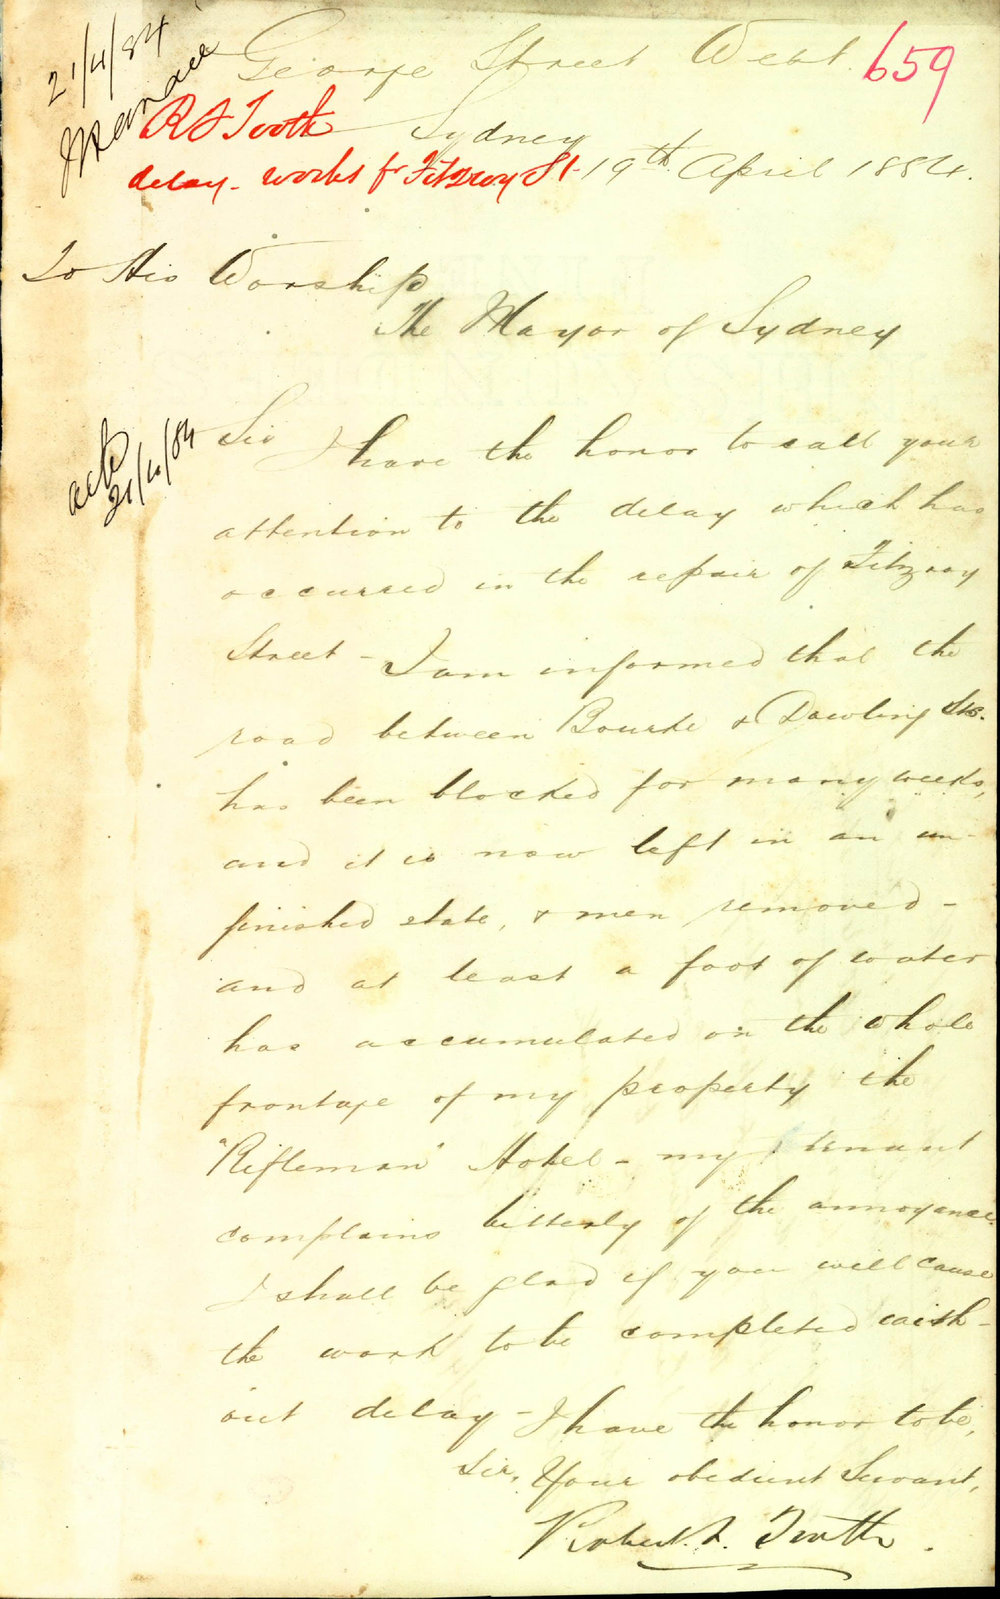 21/4/84
George Street West
659
R L Tooth
Sydney
delay - works fr Fitzroy St.
19th April 1884.
To His Worship
The Mayor of Sydney
ack
21/4/84
Sir I have the honor to call your
attention to the delay which has
occurred in the repair of Fitzroy
Street - I am informed that the
road between Bourke & Dowling Sts.
has been blocked for many weeks,
and it is now left in an un-
finished state, & men removed -
and at least a foot of water
has accumulated on the whole
frontage of my property the
"Rifleman" Hotel - my tenant
complains bitterly of the annoyance.
I shall be glad if you will cause
the work to be completed with-
out delay - I have the honor to be,
Sir, Your obedient Servant,
Robert L. Tooth.